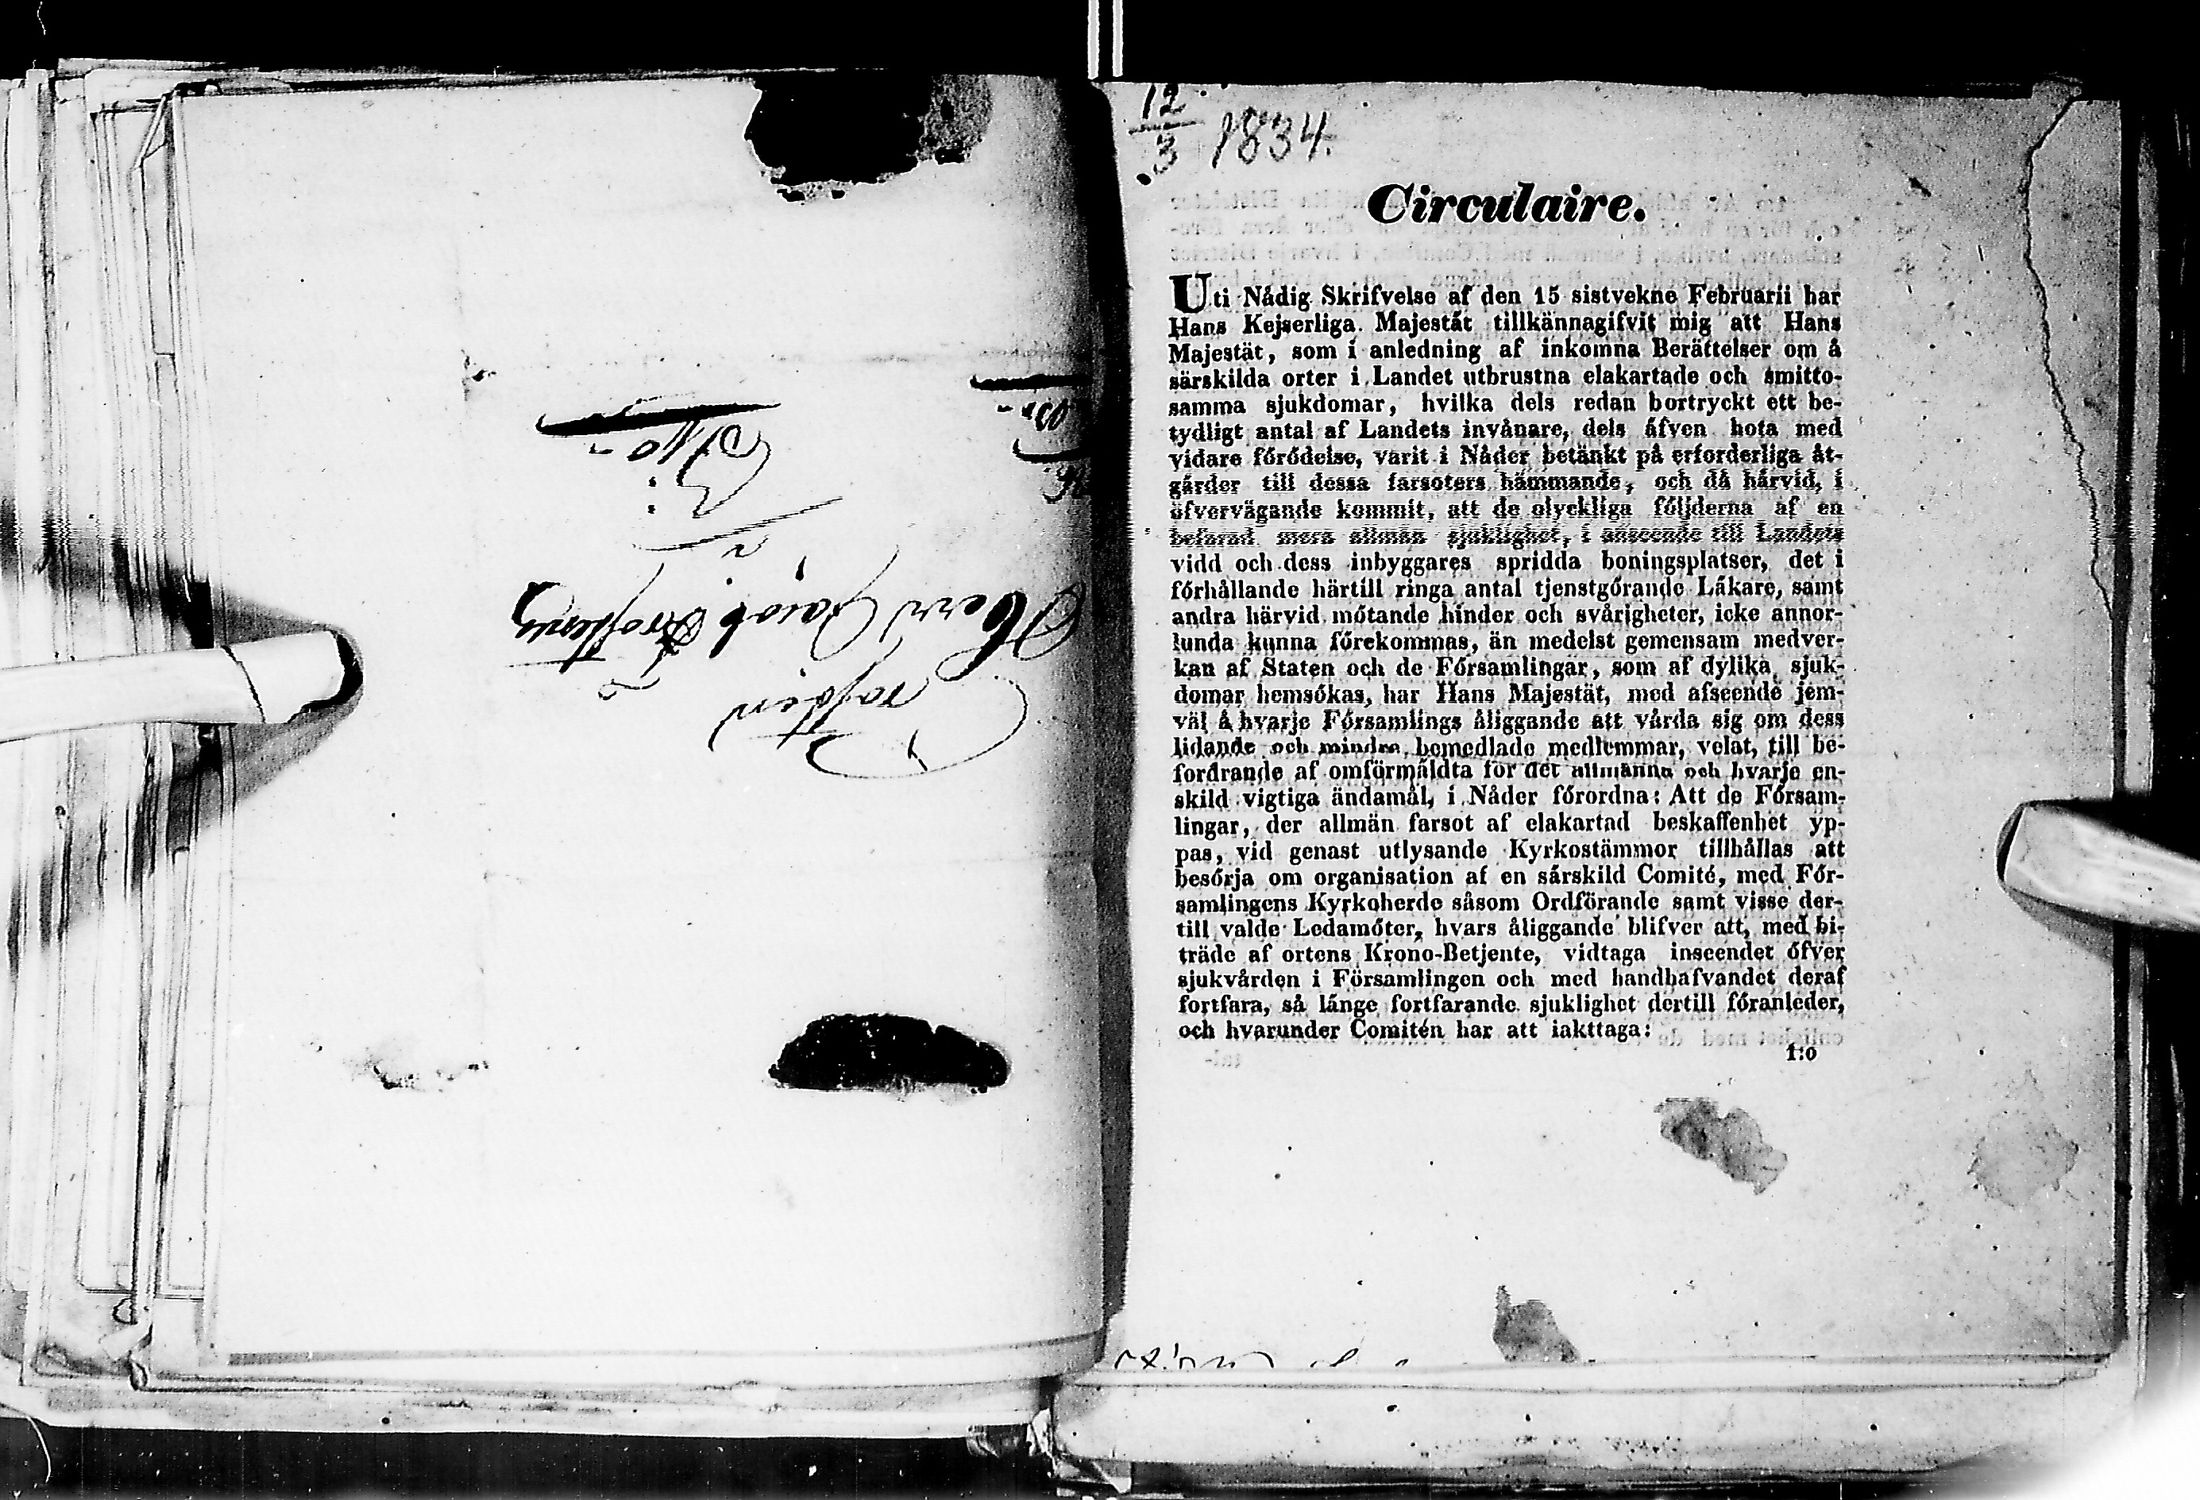 12
3
1834.
Circulaire.
Uti Nådig Skrifvelse af den 15 sistvekne Februarii har
Hans Kejserliga Majestät tillkännagifvit mig att Hans
Majestät, som i anledning af inkomna Berättelser om å
särskilda orter i Landet utbrustna elakartade och smitto-
samma sjukdomar, hvilka dels redan bortryckt ett be-
tydligt antal af Landets invånare, dels äfven hota med
vidare förödelse, varit i Nåder betänkt på erforderliga åt-
gärder till dessa farsoters hämmande, och då härvid, i
öfvervägande kommit, att de olyckliga följderna af en
befarad mera allmän sjuklighet, i anseende till Landets
vidd och dess inbyggares spridda boningsplatser, det i
förhållande härtill ringa antal tjenstgörande Läkare, samt
andra härvid mötande hinder och svårigheter, icke annor-
lunda kunna förekommas, än medelst gemensam medver-
kan af Staten och de Församlingar, som af dylika sjuk-
domar hemsökas, har Hans Majestät, med afseende jem-
väl å hvarje Församlings åliggande att vårda sig om dess
lidande och mindre bemedlade medlemmar, velat, till be-
fordrande af omförmäldta för det allmänna och hvarje en-
skild vigtiga ändamål, i Nåder förordna: Att de Försam-
lingar, der allmän farsot af elakartad beskaffenhet yp-
pas, vid genast utlysande Kyrkostämmor tillhållas att
besörja om organisation af en särskild Comité, med För-
samlingens Kyrkoherde såsom Ordförande samt visse der-
till valde Ledamöter, hvars åliggande blifver att, med bi-
träde af ortens Krono-Betjente, vidtaga inseendet öfver
sjukvården i Församlingen och med handhafvandet deraf
fortfara, så länge fortfarande sjuklighet dertill föranleder,
och hvarunder Comitén har att iakttaga:
1:o